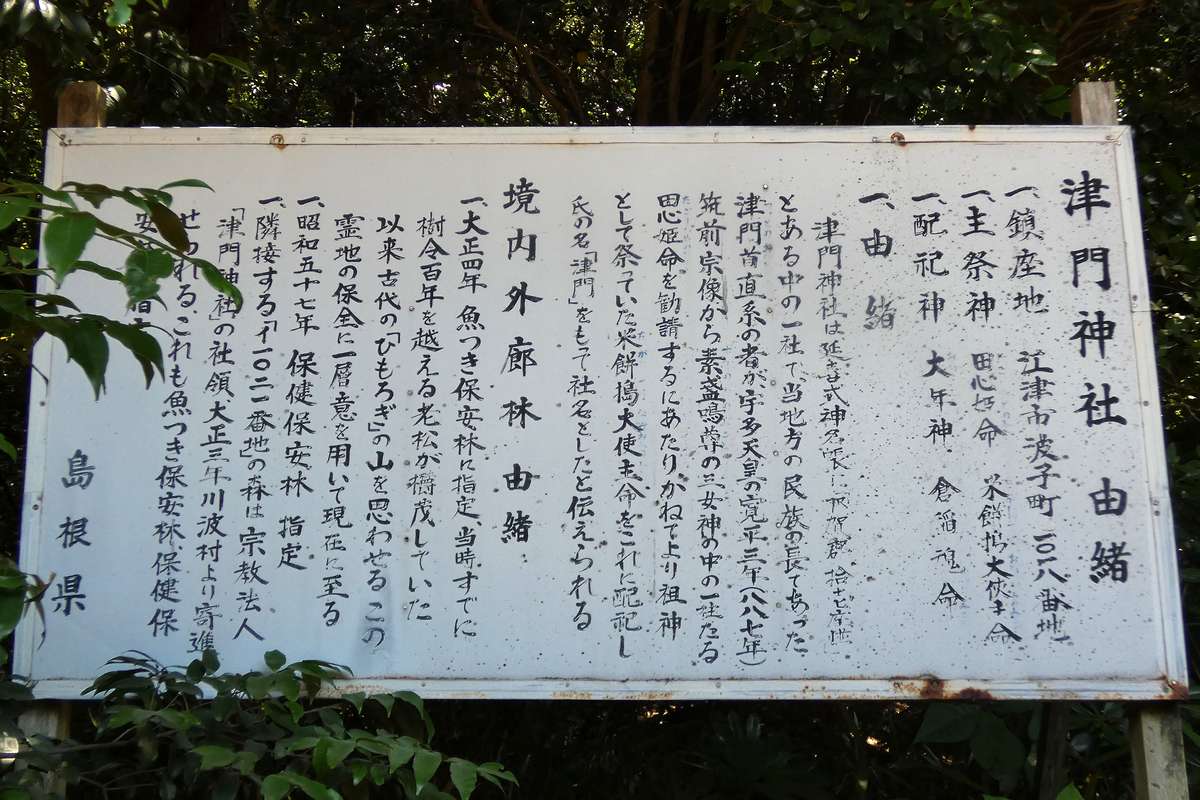 津門神社由緒
一、鎮座地 江津市波子町一〇一八番地
一、主祭神 田心姫命 米餅搗大使主命
一、配祀神 大年神 倉稲魂命
一、由緒
津門神社は延喜式神名帳に那賀郡拾壱座
とある中の一社で、当地方の民族の長であった
津門首直系の者が宇多天皇の寛平三年(八八七年)
筑前宗像から素盞鳴尊の三女神の中の一社たる
田心姫命を勧請するにあたりかねてより祖神
として祭っていた米餅搗大使主命をこれに配祀し
氏の名「津門」をもて社名としたと伝えられる
境内外廊林由緒
一、大正四年 魚つき保安林に指定、当時すでに
樹令百年を越える老松が欝茂していた
以来古代の「ひもろぎ」の山を思わせるこの
霊地の保全に一層意を用いて現在に至る
一、昭和五十七年 保健保安林 指定
一、隣接する「千一〇二一番地」の森は宗教法人
「津門神社」の社領大正三年川波村より寄進
せられるこれも魚つき保安林、保健保
安
島根県